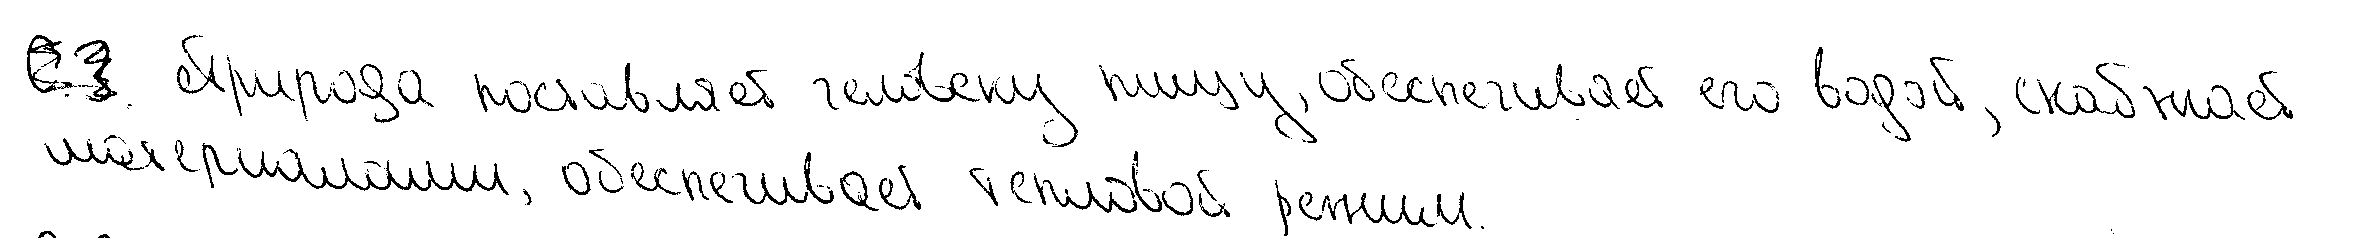 С3. Природа поставляет человеку пищу, обеспечивает его водой, снабжает
материалами, обеспечивает тепловой режим.